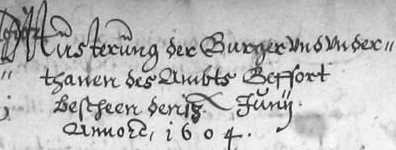 Musterung der Burger vnd vnder=
thanen des Ambts Beffort
Bescheen den 13. Junÿ.
Anno etc, 1604.